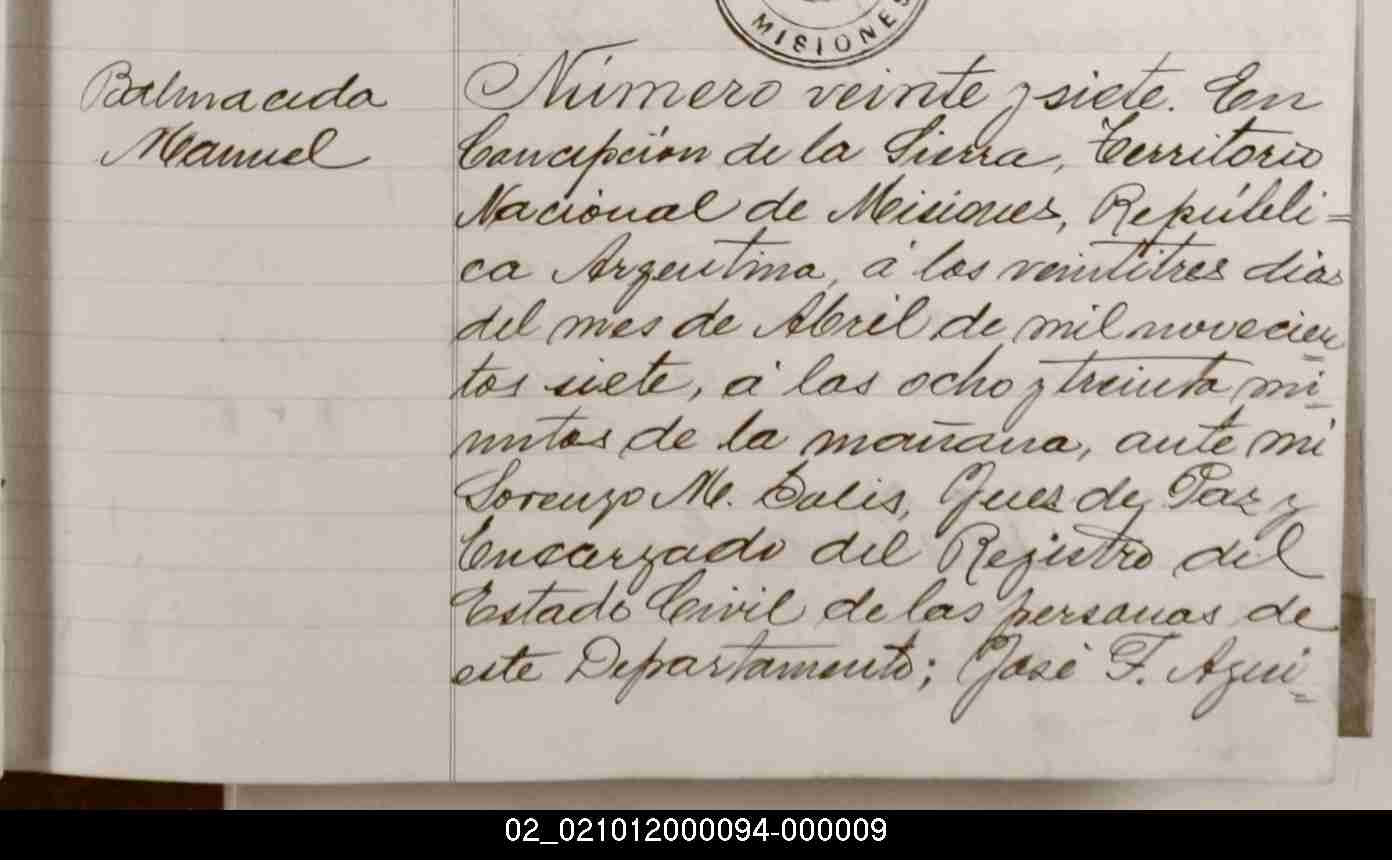 MISIONES
Balmaceda
Manuel
Número veinte y siete. En
Concepción de la Sierra, Territorio
Nacional de Misiones, Repúbli=
ca Argentina, á los veintitres dias
del mes de Abril de mil novecien
tos siete, á las ocho y treinta mi
nutos de la mañana, ante mi
Lorenzo M. Calis, Juez de Paz y
Encargado del Registro del
Estado Civil de las personas de
este Departamento; José F. Agui=
02_021012000094-000009